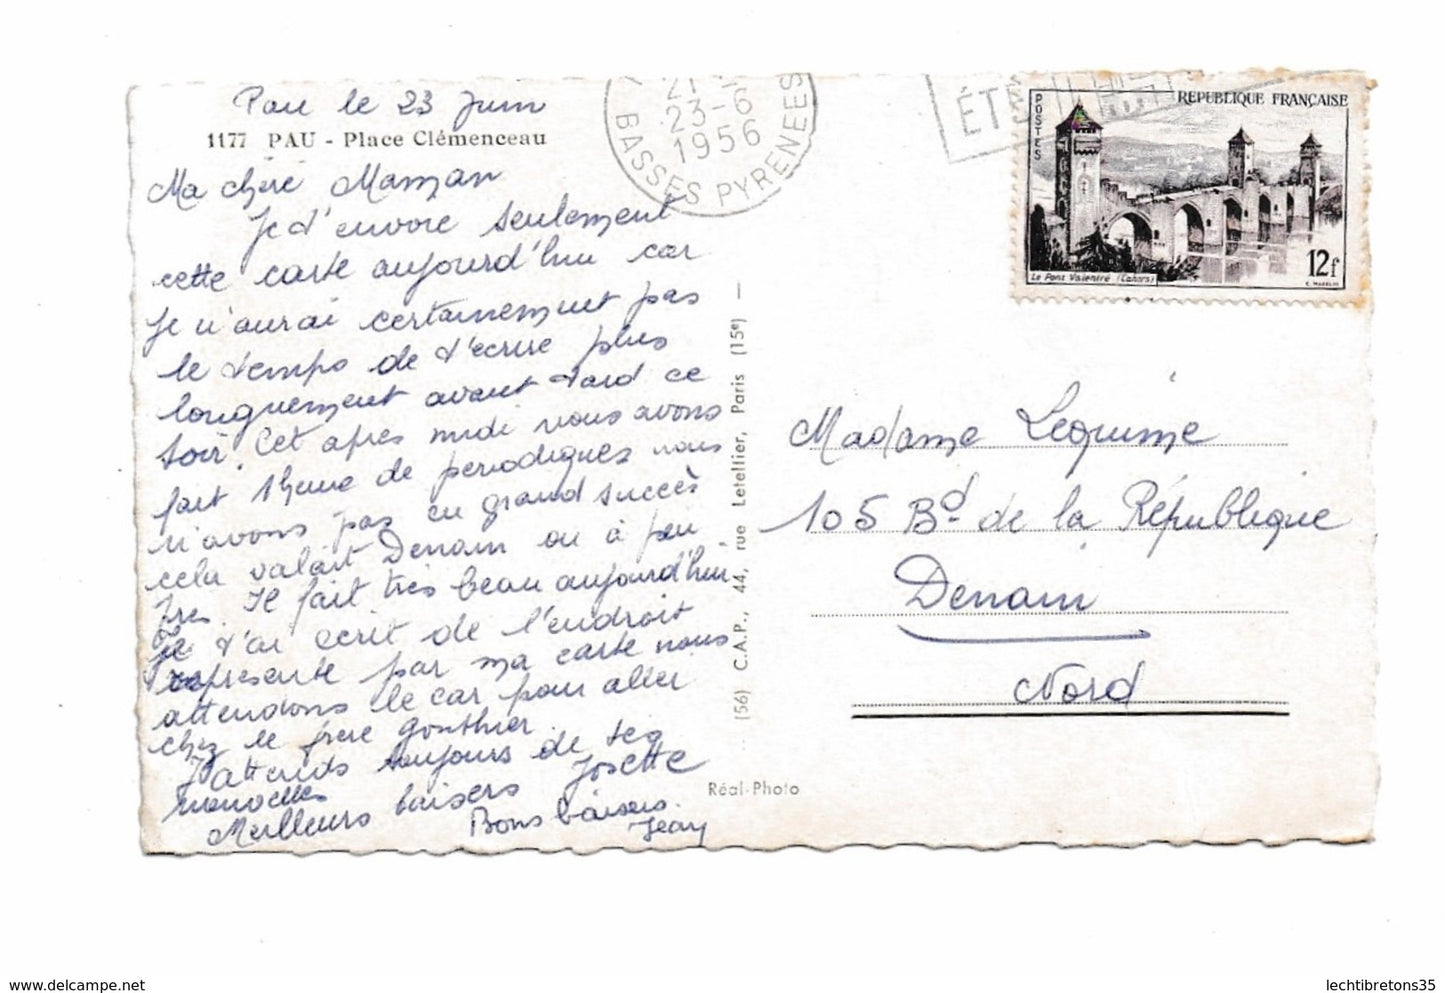 Pau le 23 Juin
1177 PAU - Place Clémenceau
Ma chère Maman
Je t'envoie seulement
cette carte aujourd'hui car
Je n'aurai certainement pas
le temps de t'écrire plus
longuement avant tard ce
soir. Cet après midi nous avons
fait 1 heure de periodiques nous
n'avons pas eu grand succès
cela valait Denain ou à peu
près. Il fait très beau aujourd'hui.
Je t'ai écrit de l'endroit
représenté par ma carte nous
attendons le car pour aller
chez le frère Gonthier
J'attends toujours de tes
nouvelles
Meilleurs baisers Josette
Bons baisers
Jean
(56) C.A.P., 44, rue Letellier, Paris (15e) —
Réal-Photo
23-6
1956
BASSES PYRENEES
ÉTÉ
POSTES
REPUBLIQUE FRANÇAISE
12f
Le Pont Valentré (Cahors)
Madame Lequime
105 Bd de la République
Denain
Nord
delcampe.net
lechtibretons35